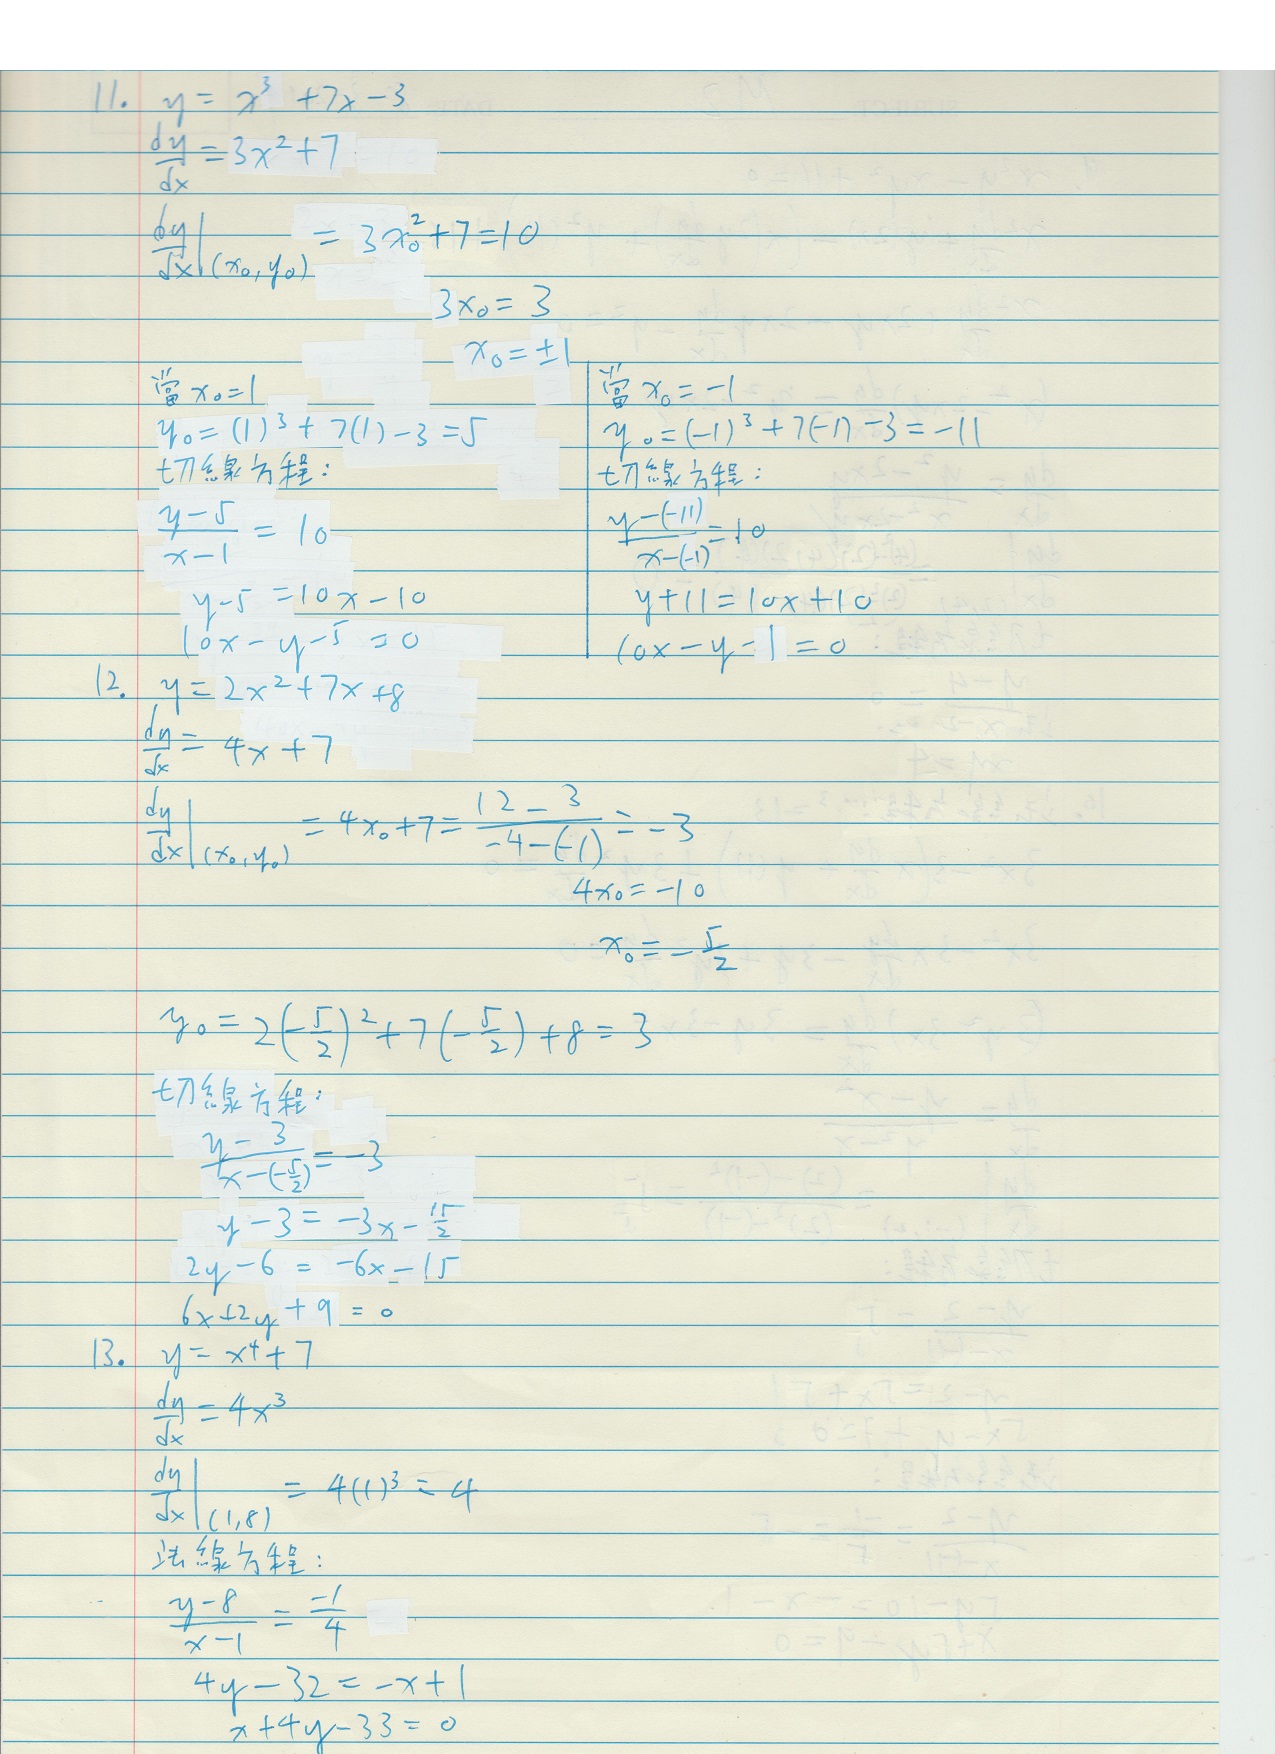 11. y = x³ + 7x - 3
dy/dx = 3x² + 7
dy/dx |(x₀, y₀) = 3x₀² + 7 = 10
3x₀ = 3
x₀ = ±1
當 x₀ = 1
y₀ = (1)³ + 7(1) - 3 = 5
切線方程:
(y - 5)/(x - 1) = 10
y - 5 = 10x - 10
10x - y - 5 = 0
當 x₀ = -1
y₀ = (-1)³ + 7(-1) - 3 = -11
切線方程:
(y - (-11))/(x - (-1)) = 10
y + 11 = 10x + 10
10x - y - 1 = 0
12. y = 2x² + 7x + 8
dy/dx = 4x + 7
dy/dx |(x₀, y₀) = 4x₀ + 7 = (12 - 3)/(-4 - (-1)) = -3
4x₀ = -10
x₀ = -5/2
y₀ = 2(-5/2)² + 7(-5/2) + 8 = 3
切線方程:
(y - 3)/(x - (-5/2)) = -3
y - 3 = -3x - 15/2
2y - 6 = -6x - 15
6x + 2y + 9 = 0
13. y = x⁴ + 7
dy/dx = 4x³
dy/dx |(1, 8) = 4(1)³ = 4
法線方程:
(y - 8)/(x - 1) = -1/4
4y - 32 = -x + 1
x + 4y - 33 = 0